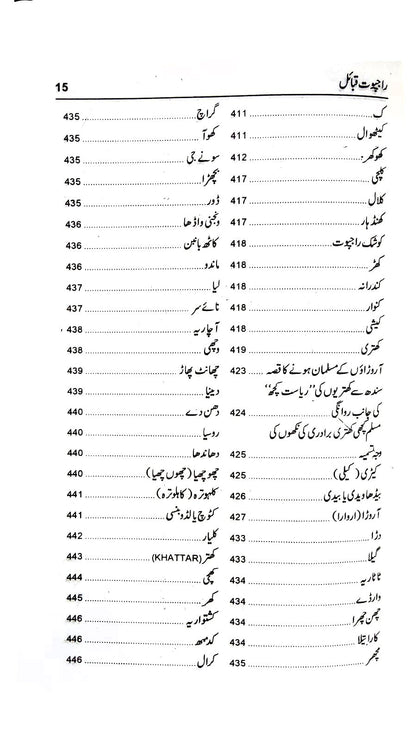 راجپوت قبائل 15
ک 411
کیٹھوال 411
کھوکھر 412
کلپی 417
کلال 417
کھنڈ ہار 417
کوشک راجپوت 418
کھڑ 418
کندرانہ 418
کنوار 418
کیشی 418
کھتری 419
آروڑاؤں کے مسلمان ہونے کا قصہ 423
سندھ سے کھتریوں کی ”ریاست کچھ“
کی جانب روانگی 424
مسلم کچھی کھتری برادری کی نکھوں کی
وجہ تسمیہ 425
کیڑی (کیلی) 425
بیڈھا ویدی یا بیدی 426
آروڑا (اروارا) 427
دڑا 433
گیلا 433
ٹاٹاریہ 434
وارڈے 434
چھن چھرا 434
کاراٹیلا 434
مچھر 435
گراچ 435
کھوآ 435
سونے جی 435
بچھڑا 435
ڈور 435
ونجنی واڈھا 436
کاٹھ بانہن 436
ماندو 436
لیا 437
نائے سر 437
آچاریہ 438
وچھی 438
چھانٹ پھاڑ 439
دیپنا 439
دھن دے 440
روسیا 440
دھاندھا 440
چھوچھیا (چھوں چھیا) 440
کلہوترہ (کاہلوترہ) 441
کٹوچ یا لڈو بنسی 441
کلیار 442
کھتر (KHATTAR) 443
کچھی 444
کھر 445
کشتواریہ 446
کدمبھ 446
کرال 446